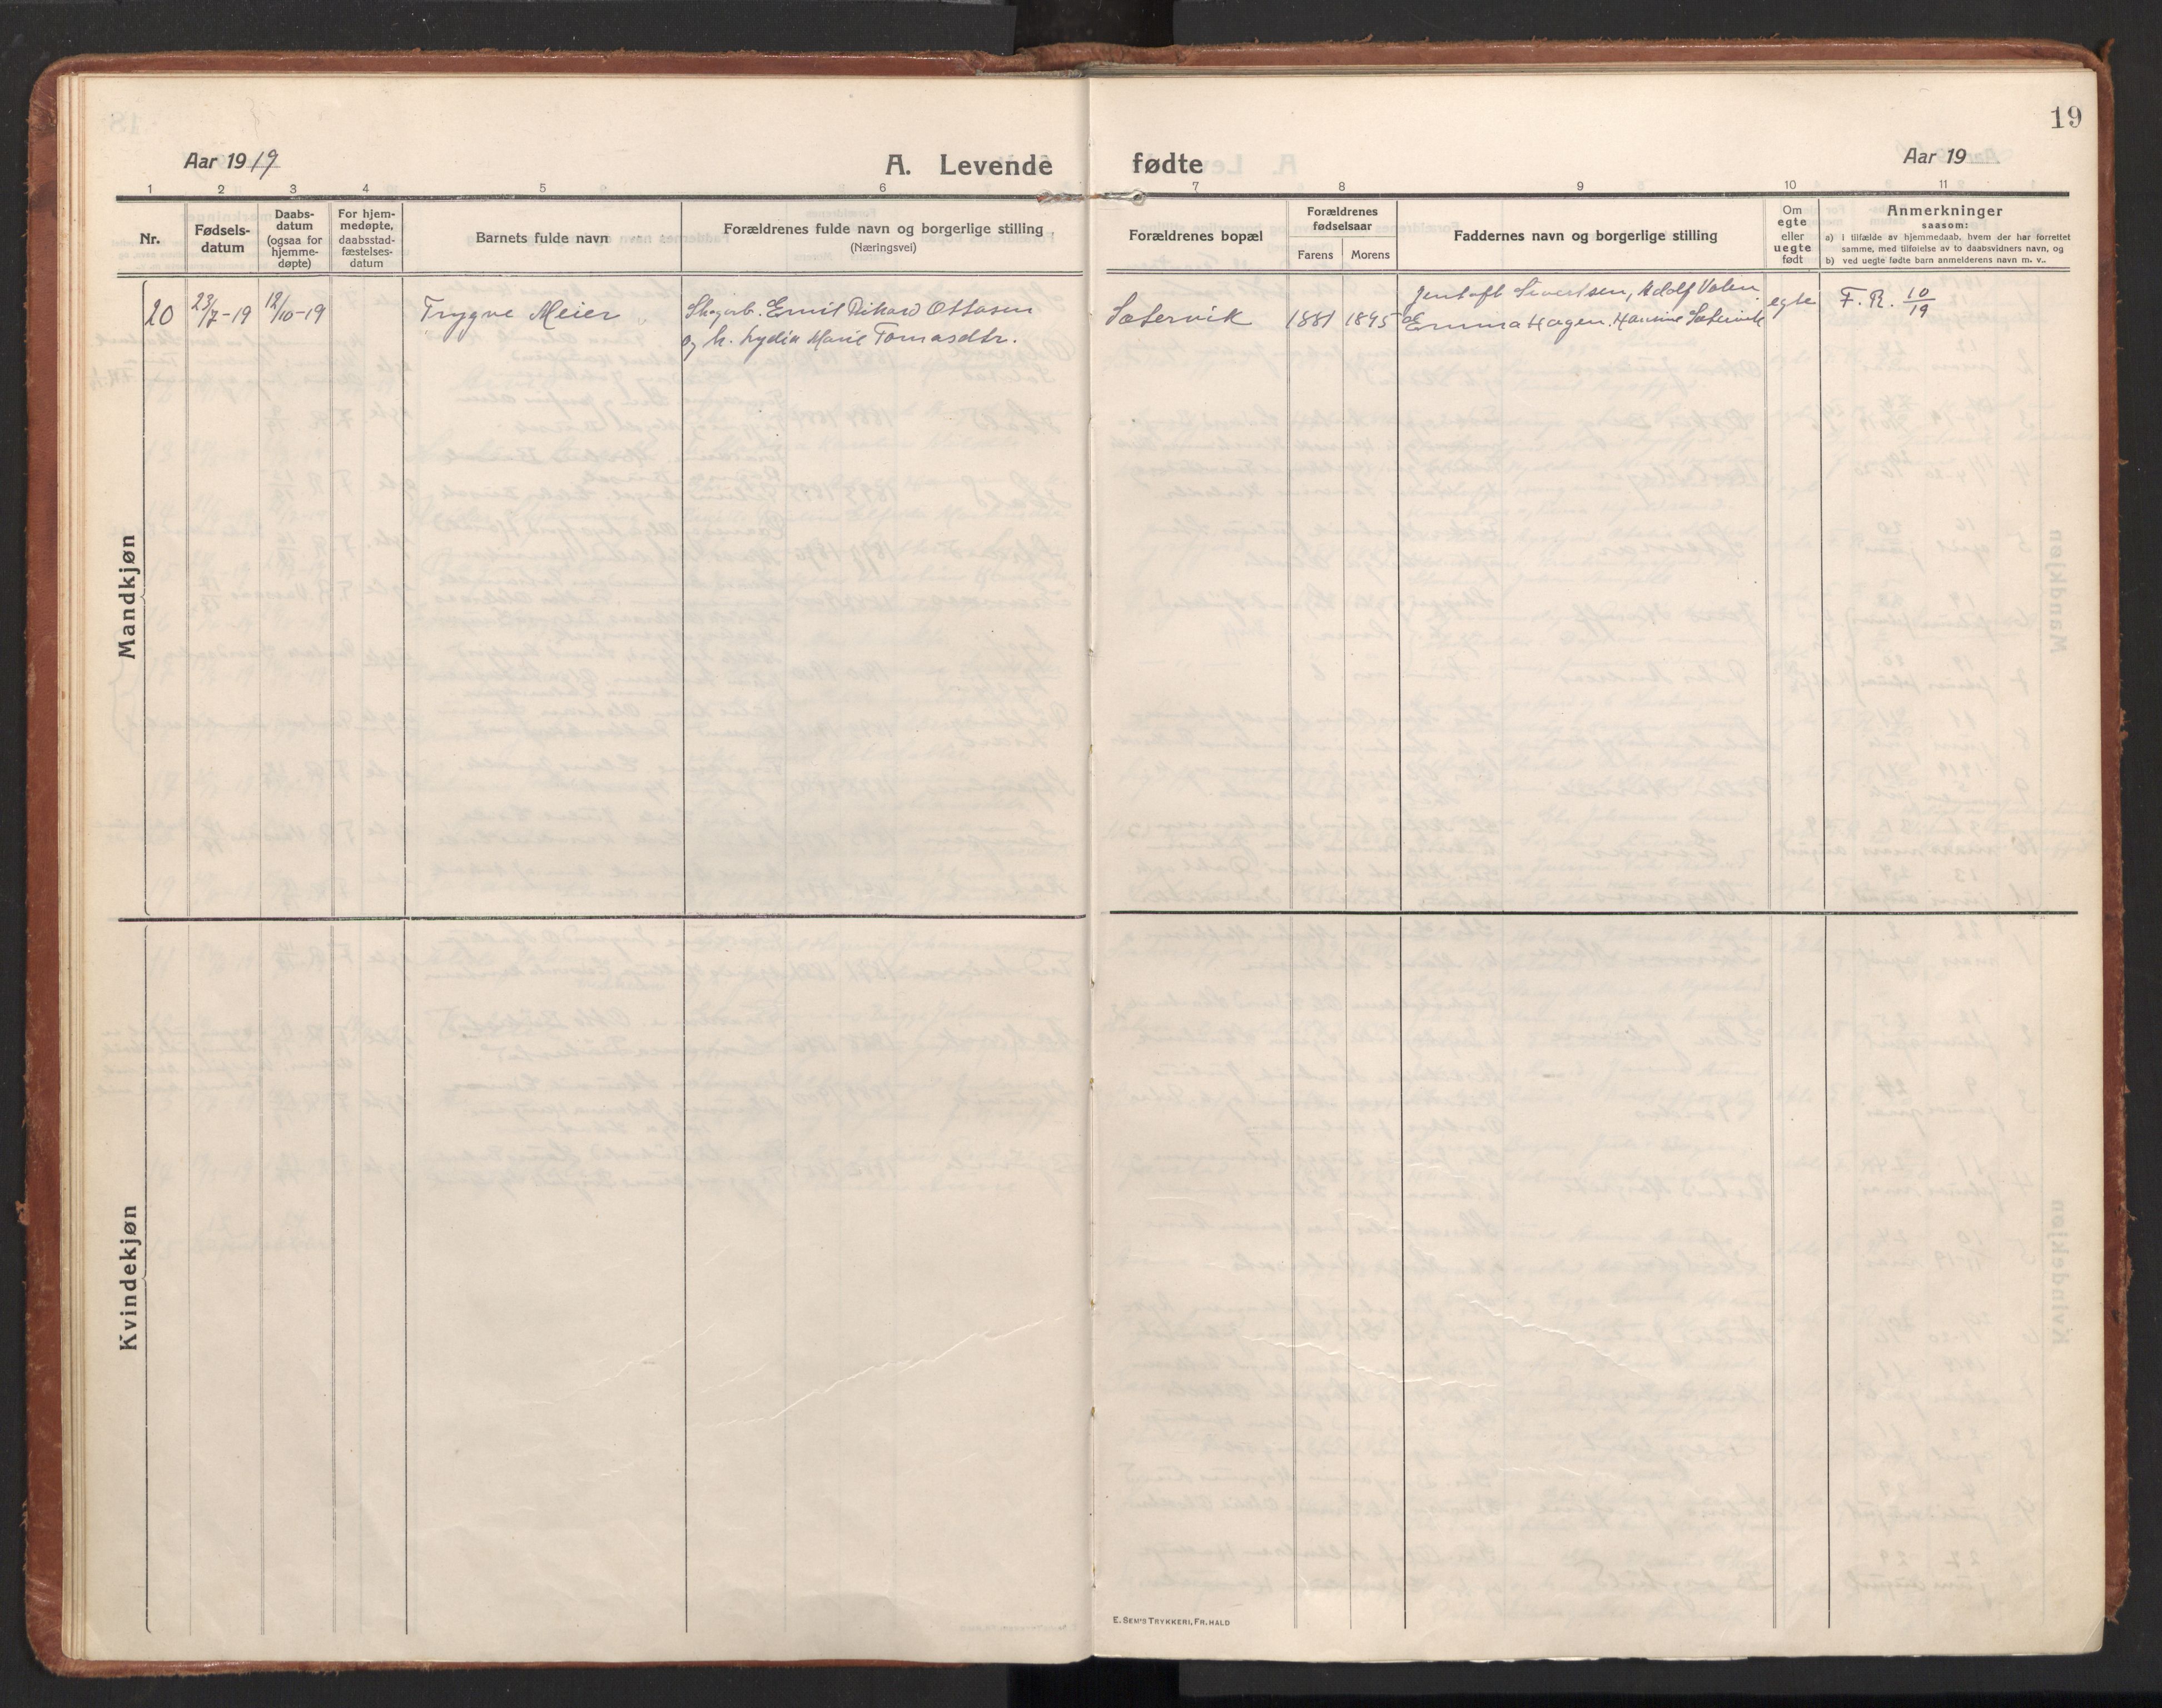 19
Aar 1919
A. Levende
fødte
Aar 19
1 2 3 4 5 6 7 8 9 10 11
Nr.
Fødsels-
datum
Daabs-
datum
(ogsaa for
hjemme-
døpte)
For hjem-
medøpte,
daabsstad-
fæstelses-
datum
Barnets fulde navn
Forældrenes fulde navn og borgerlige stilling
(Næringsvei)
Forældrenes bopæl
Forældrenes
fødselsaar
Farens Morens
Faddernes navn og borgerlige stilling
Om
egte
eller
uegte
født
Anmerkninger
saasom:
a) i tilfælde av hjemmedaab, hvem der har forrettet
samme, med tilføielse av to daabsvidners navn, og
b) ved uegte fødte barn anmelderens navn m. v..
Mandkjøn
20 23/7-19 12/10-19 Trygve Meier
Emil Rikard Ottosen
og h. Lydia Marie Tomasdtr.
Sætervik 1881 1895
Jentoft Sivertsen, Adolf Valen
Emma Hagen. Hansine Sætervik
egte
F. R. 10/19
Kvindekjøn
E. SEM'S TRYKKERI, FR.HALD